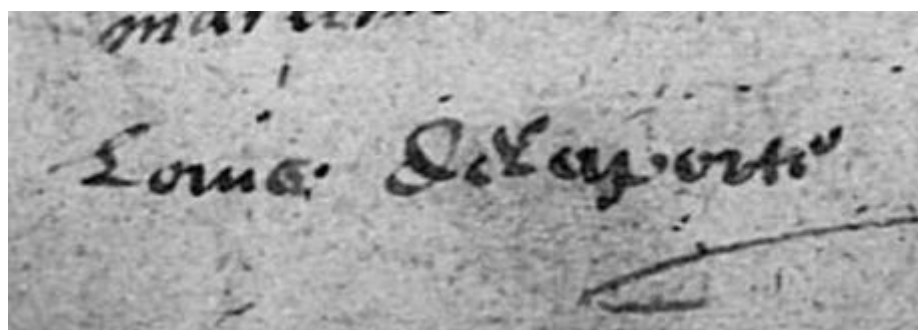 Louis Delaporte